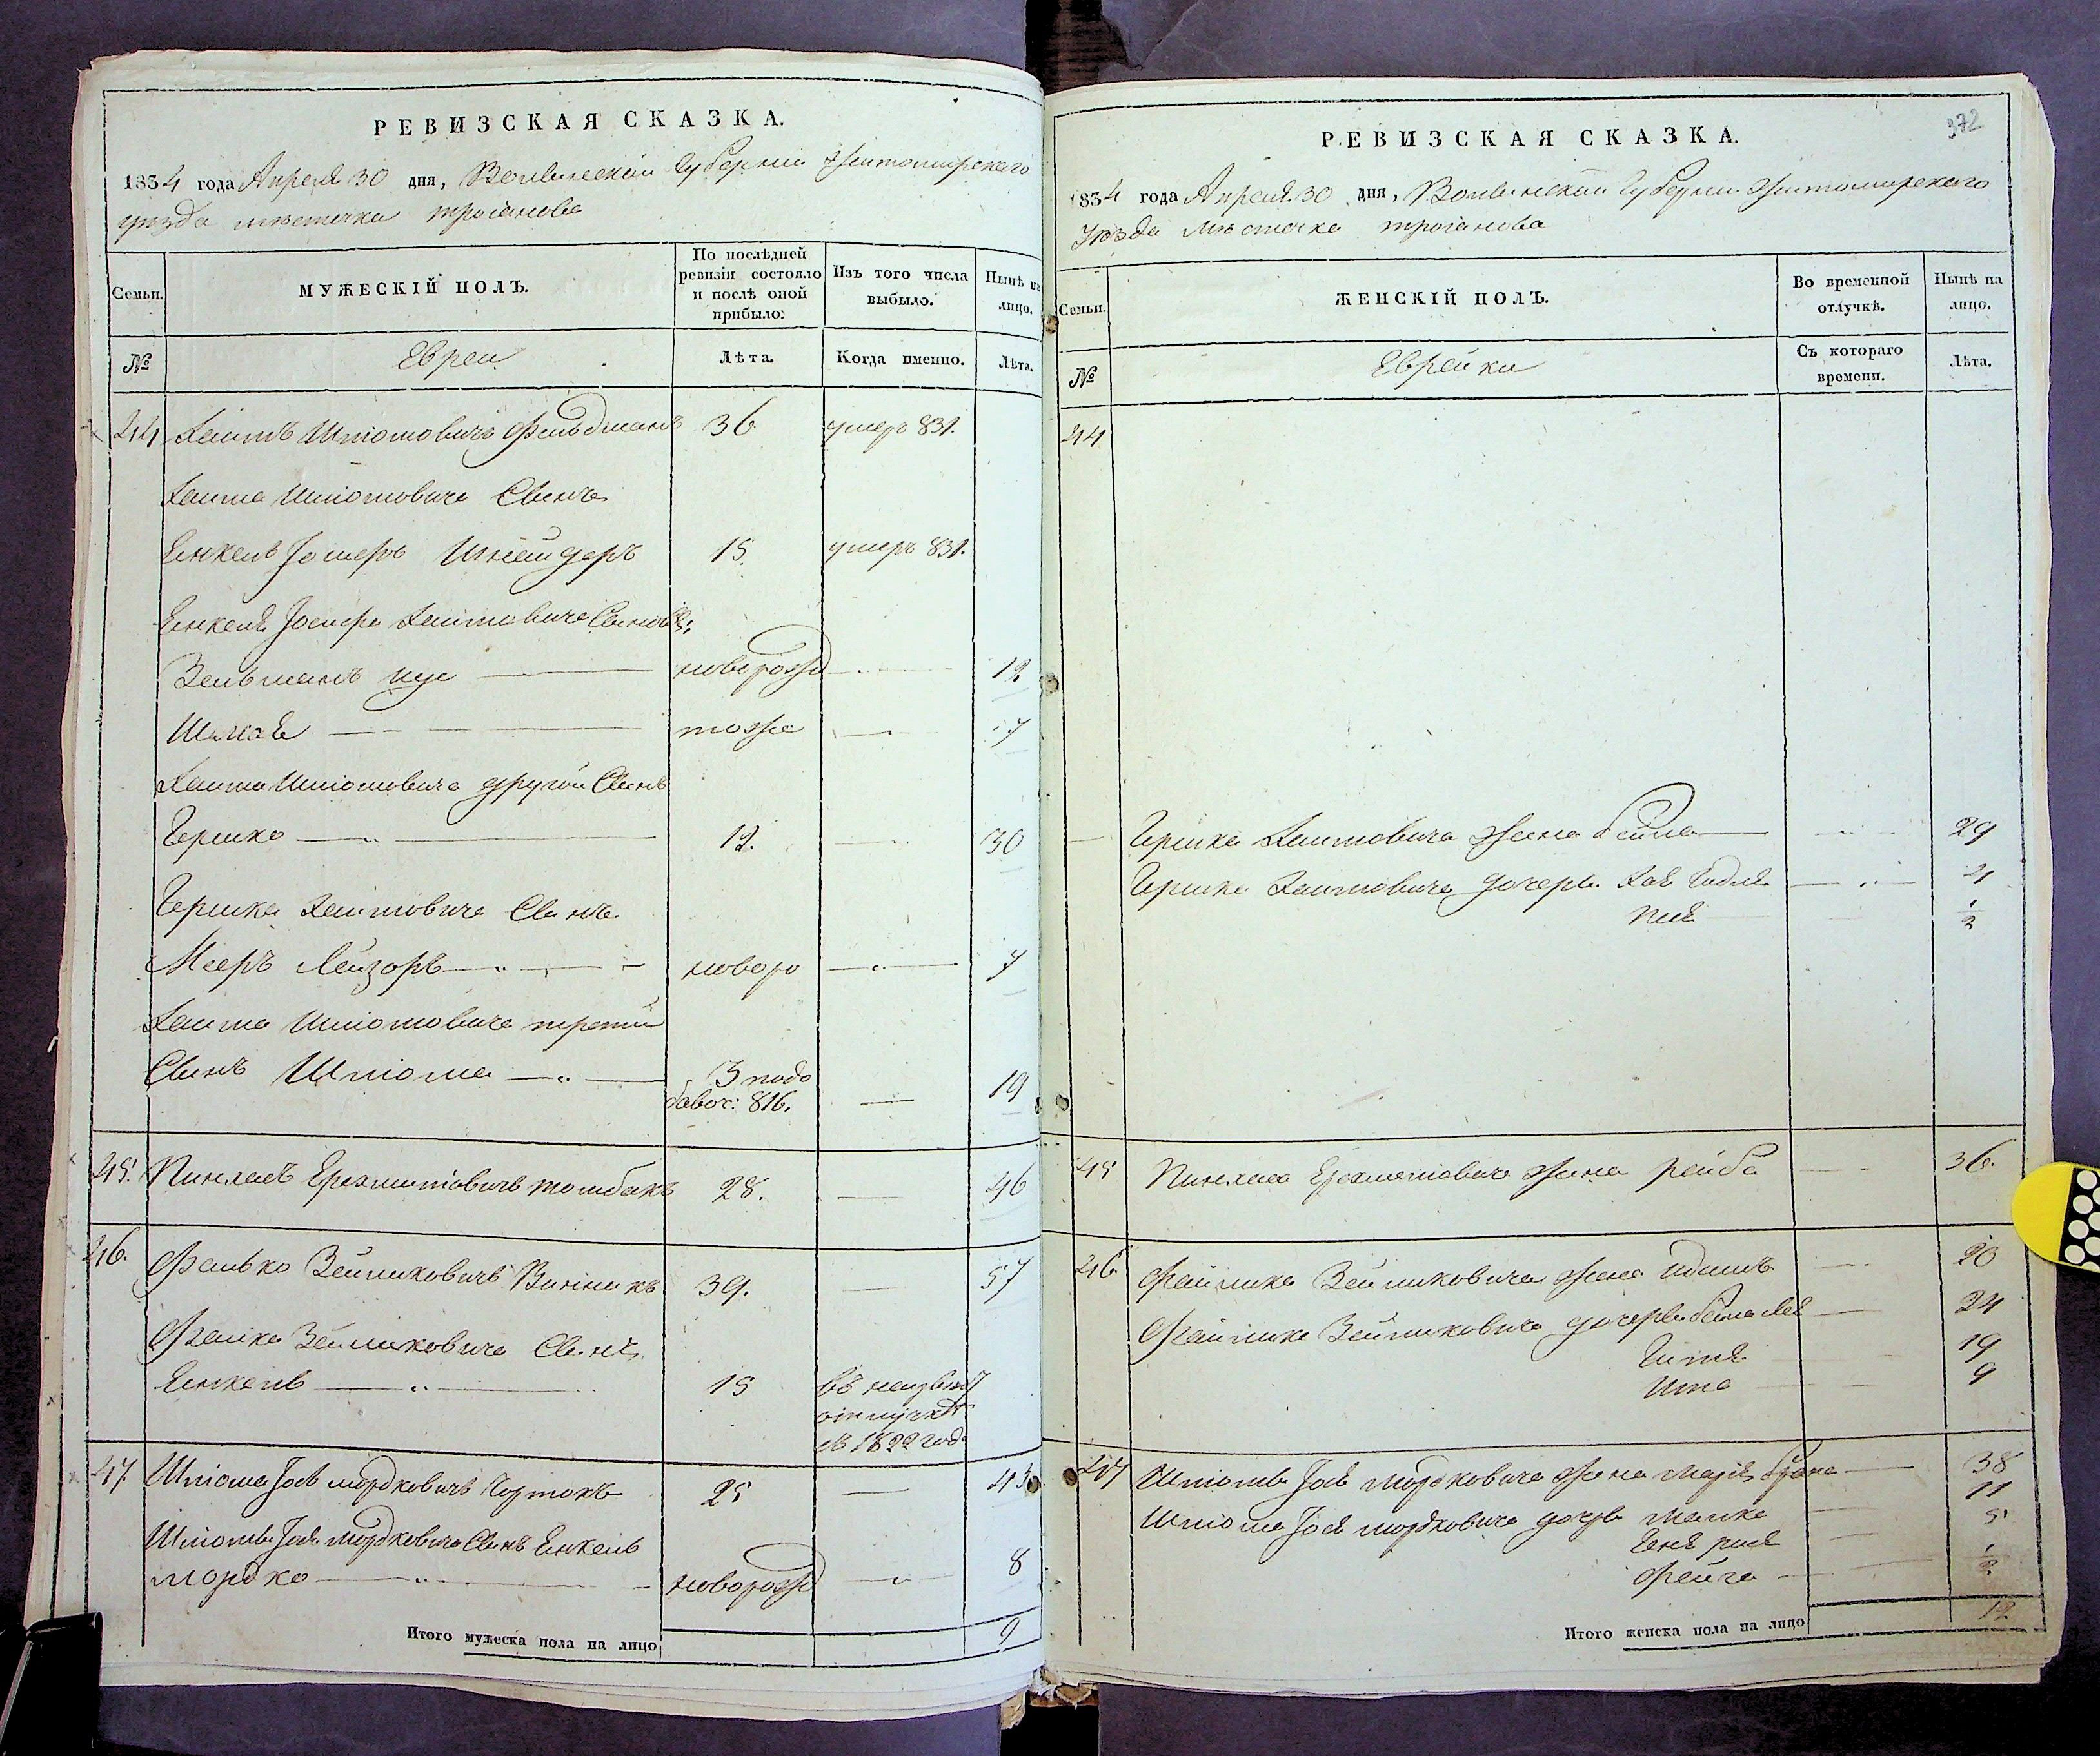 РЕВИЗСКАЯ СКАЗКА.
1834 года Апреля 30 дня, Волынской Губернии Житомирскаго
уезда местечка Троянова
Семьи.
МУЖЕСКІЙ ПОЛЪ.
По послѣдней ревизіи состояло и послѣ оной прибыло:
Изъ того числа выбыло.
Нынѣ на лицо.
№
Евреи
Лѣта.
Когда именно.
Лѣта.
44 Хаимъ Шліомовичъ Фельдманъ 36 умеръ 831.
Хаима Шліомовича Сынъ
Енкель Іосиеръ Шнейдеръ 15 умеръ 831.
Енкеля Хаимовича Сыновья:
Зельманъ новорожд 12
тоже 7
Хаима Шліомовича другой Сынъ
Гершко 12. 30
Гершка Хаимовича Сынъ
Мееръ Лейзоръ новоро 7
Хаима Шліомовича третій
Сынъ Шліома
бавоч: 816. 19
45. Пинхасъ 28. 46
46. Фалько Зейликовичъ Винникъ 39. 57
Фалка Зейликовича Сынъ
Енкель 15 въ неизвѣст
отлучкѣ
съ 1822 года
47 Шліома Іось Мордковичъ Чортокъ 25 43
Шліомы Іося Мордковича Сынъ Енкель
Мордко новорожд 8
Итого мужеска пола на лицо 9
972
РЕВИЗСКАЯ СКАЗКА.
1834 года Апреля 30 дня, Волынской Губернии Житомирскаго
Уезда Местечка Троянова
Семьи.
ЖЕНСКІЙ ПОЛЪ.
Во временной отлучкѣ.
Нынѣ на лицо.
№
Еврейки
Съ котораго времени.
Лѣта.
44
Гершка Хаимовича жена Бейла 29
Гершка Хаимовича дочери Хая 4
½
45 Пинхаса жена Рейза 36.
46 Зейликовича жена 20
Зейликовича дочери 24
Гитля 19
9
47 Шліомы Іося Мордковича жена 38
Шліома Іося Мордковича дочерь Малка 11
5
Фейга ½
Итого женска пола на лицо 12